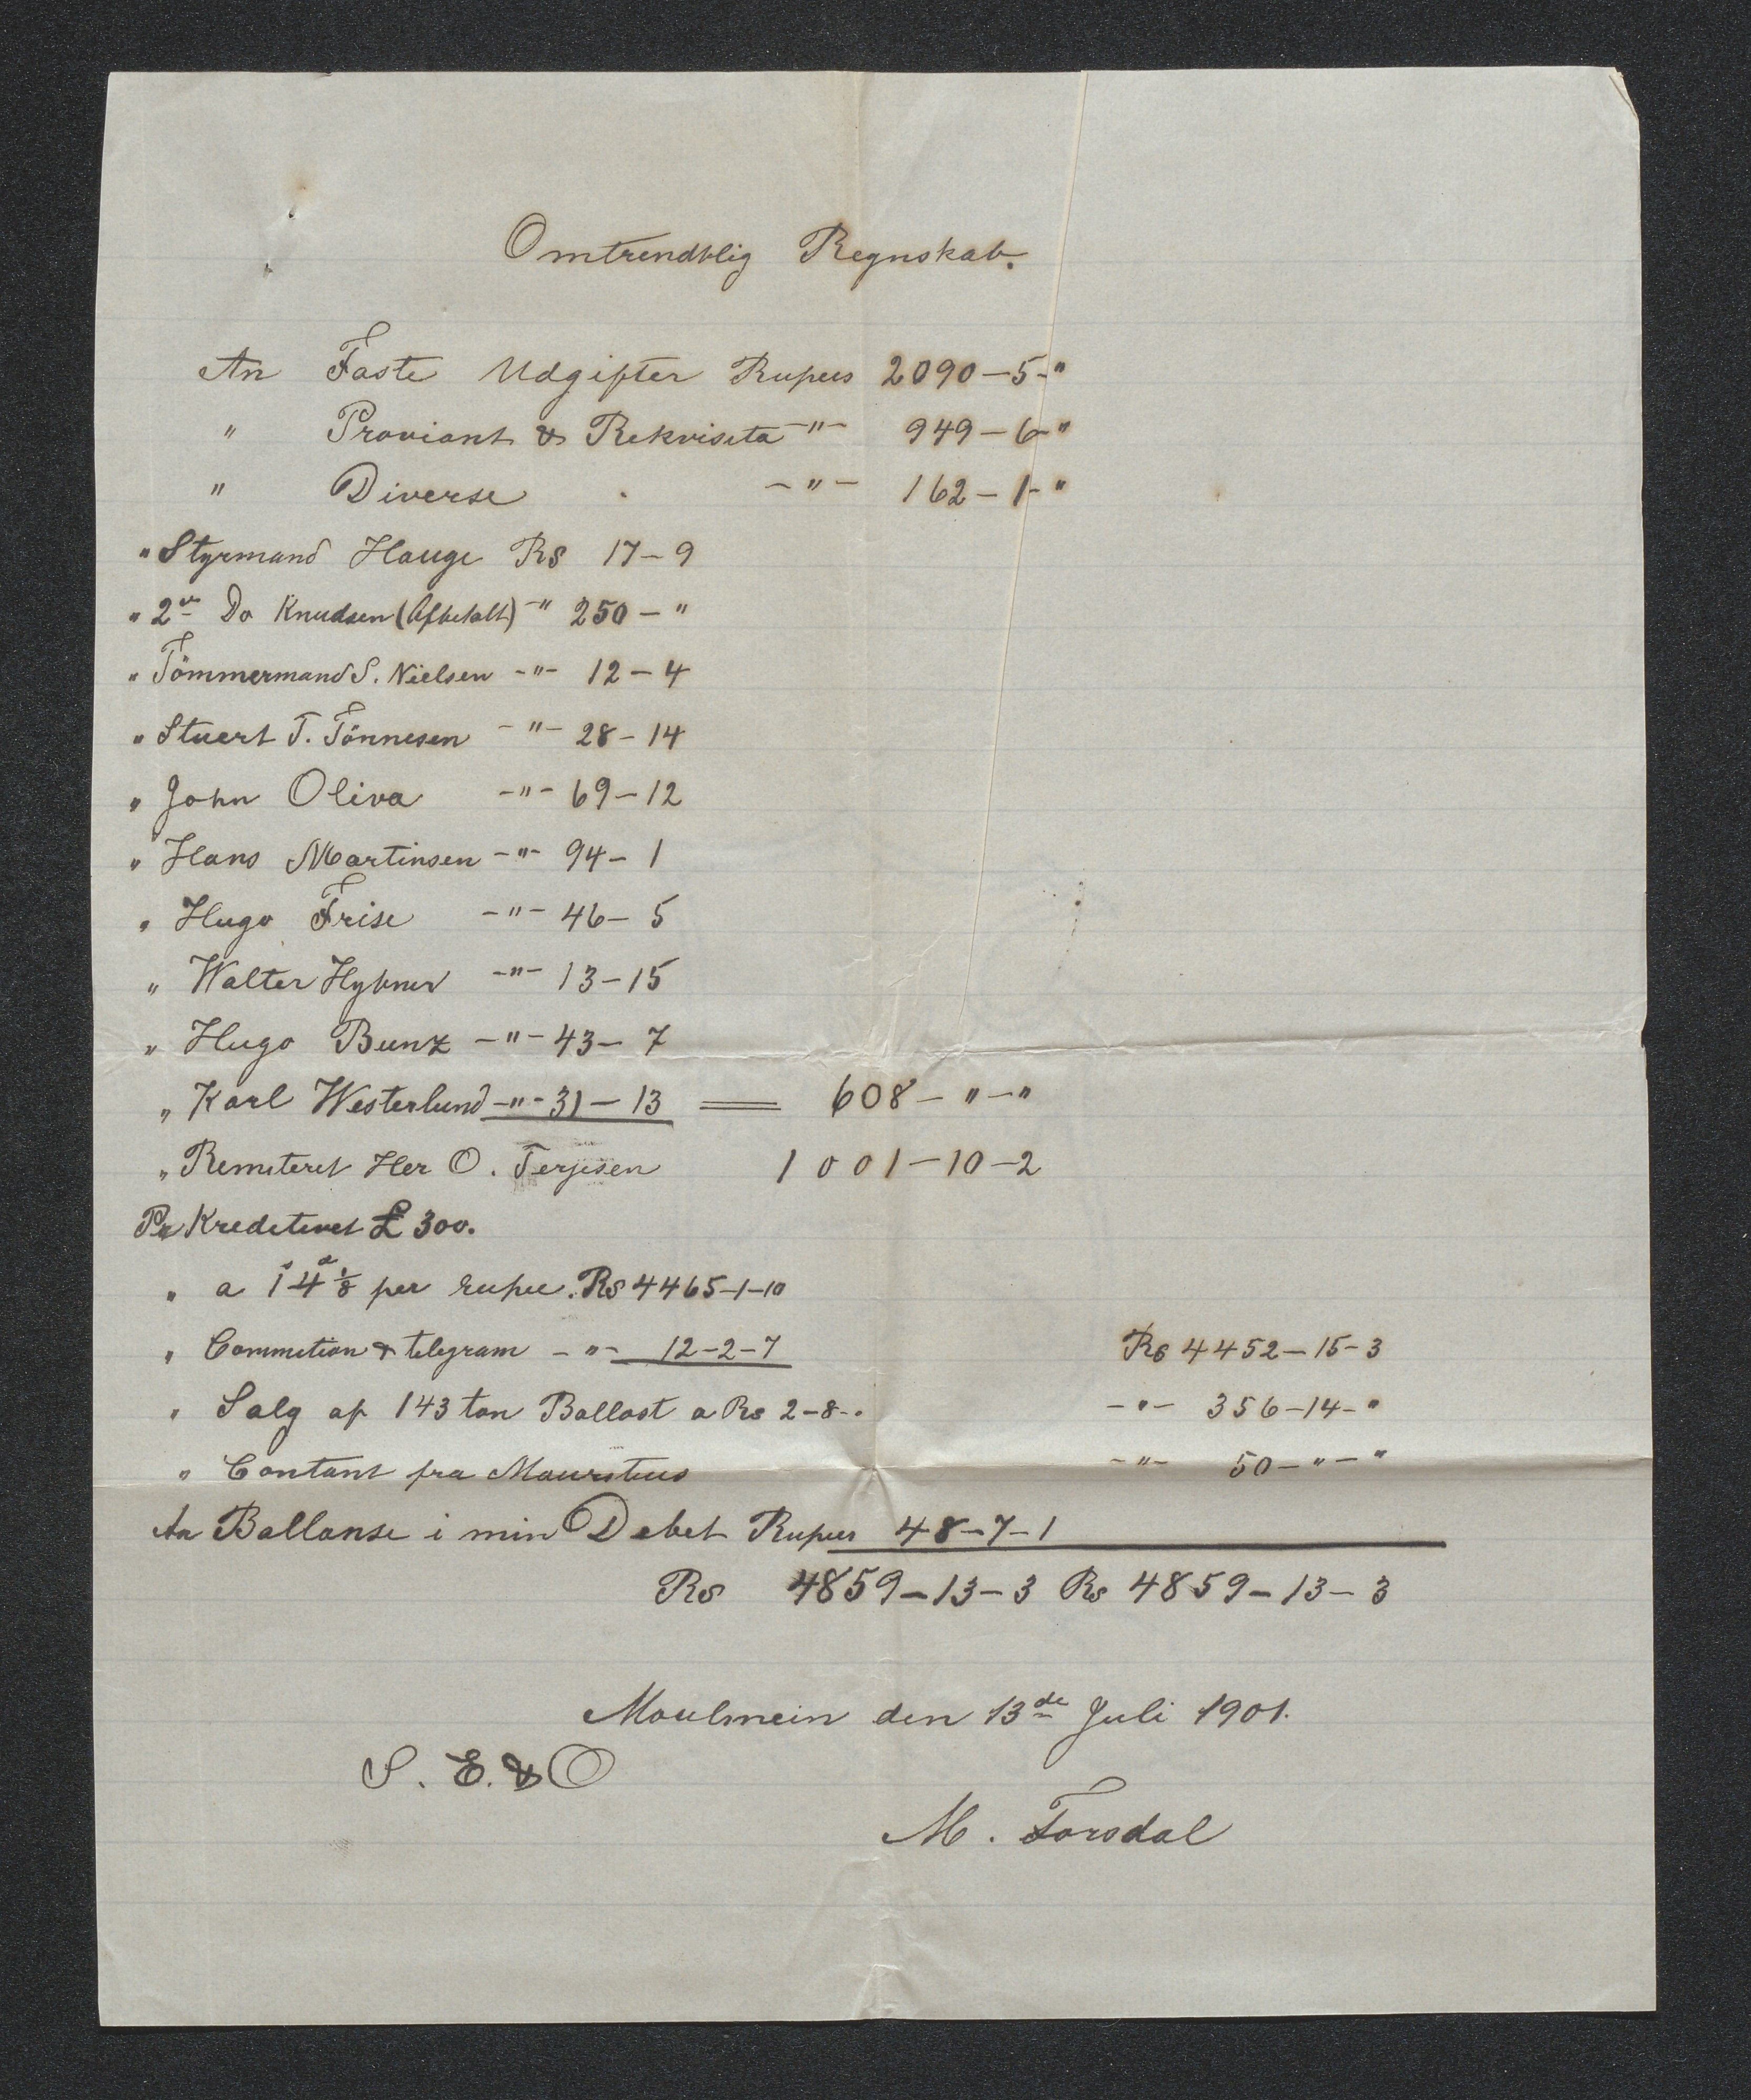 Omtrendtlig Regnskab.
An Faste Udgifter Rupees 2090-5-"
" Proviant & Rekvisita -"- 949-6-"
" Diverse -"- 162-1-"
" Styrmand Hauge Rs 17-9
" 2den Do Knudsen (Afbetalt) -" 250-"
" Tömmermand S. Nielsen -"- 12-4
" Stuert T. Tönnesen -"- 28-14
" John Oliva -"- 69-12
" Hans Martinsen -"- 94-1
" Hugo Frise -"- 46-5
" Walter -"- 13-15
" Hugo Bunz -"- 43-7
" Karl Westerlund -"- 31-13 = 608-"-"
" Remiteret Her O. Terjesen 1001-10-2
Pr Kreditivet £ 300.
" a 1s 4d 1/8 per rupee. Rs 4465-1-10
" Commetion & telegram -"- 12-2-7 Rs 4452-15-3
" Salg af 143 ton Ballast a Rs 2-8-. -"- 356-14-"
" Contant fra Mauritius -"- 50-"-"
An Ballanse i min Debet Rupees 48-7-1
Rs 4859-13-3 Rs 4859-13-3
Moulmein den 13de Juli 1901.
S. E. & O
M. Torsdal